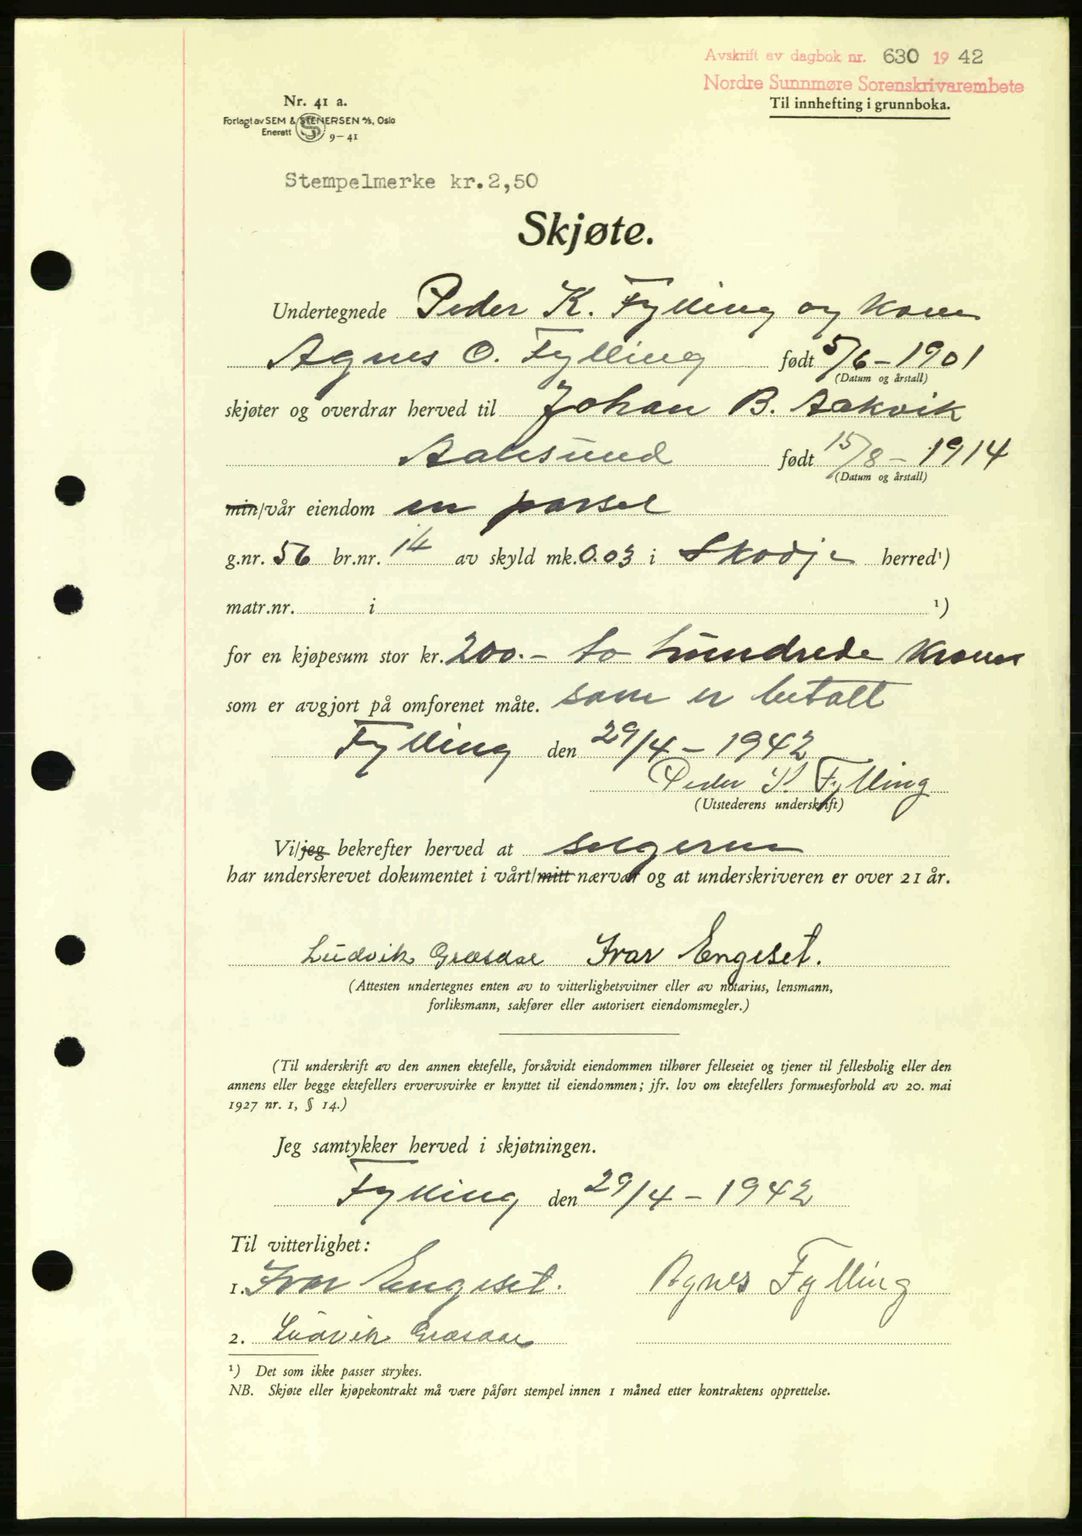 Avskrift av dagbok nr. 630 1942
Nordre Sunnmøre Sorenskrivarembete
Til innhefting i grunnboka.
Nr. 41 a.
Forlagt av SEM & STENERSEN A/S, Oslo
Enerett S 9-41
Stempelmerke kr. 2,50
Skjøte.
Undertegnede Peder K. Fylling og kone
Agnes O. Fylling født 5/6 - 1901
(Datum og årstall)
skjøter og overdrar herved til Johan B. Aakvik
Aalesund født 15/8 - 1914
(Datum og årstall)
min/vår eiendom en parsel
g.nr. 56 br.nr. 14 av skyld mk. 0.03 i Skodje herred¹)
matr.nr. i ¹)
for en kjøpesum stor kr. 200.- to hundrede kroner
som er avgjort på omforenet måte. som er betalt
Fylling den 29/4 - 1942
Peder K. Fylling
(Utstederens underskrift)
Vi/jeg bekrefter herved at selgerne
har underskrevet dokumentet i vårt/mitt nærvær og at underskriveren er over 21 år.
Ludvik Græsdal Ivar Engeset.
(Attesten undertegnes enten av to vitterlighetsvitner eller av notarius, lensmann,
forliksmann, sakfører eller autorisert eiendomsmegler.)
(Til underskrift av den annen ektefelle, forsåvidt eiendommen tilhører felleseiet og tjener til fellesbolig eller den
annens eller begge ektefellers ervervsvirke er knyttet til eiendommen; jfr. lov om ektefellers formuesforhold av 20. mai
1927 nr. 1, § 14.)
Jeg samtykker herved i skjøtningen.
Fylling den 29/4 - 1942
Til vitterlighet:
1. Ivar Engeset. Agnes Fylling
2. Ludvik Græsdal
¹) Det som ikke passer strykes.
NB. Skjøte eller kjøpekontrakt må være påført stempel innen 1 måned etter kontraktens opprettelse.